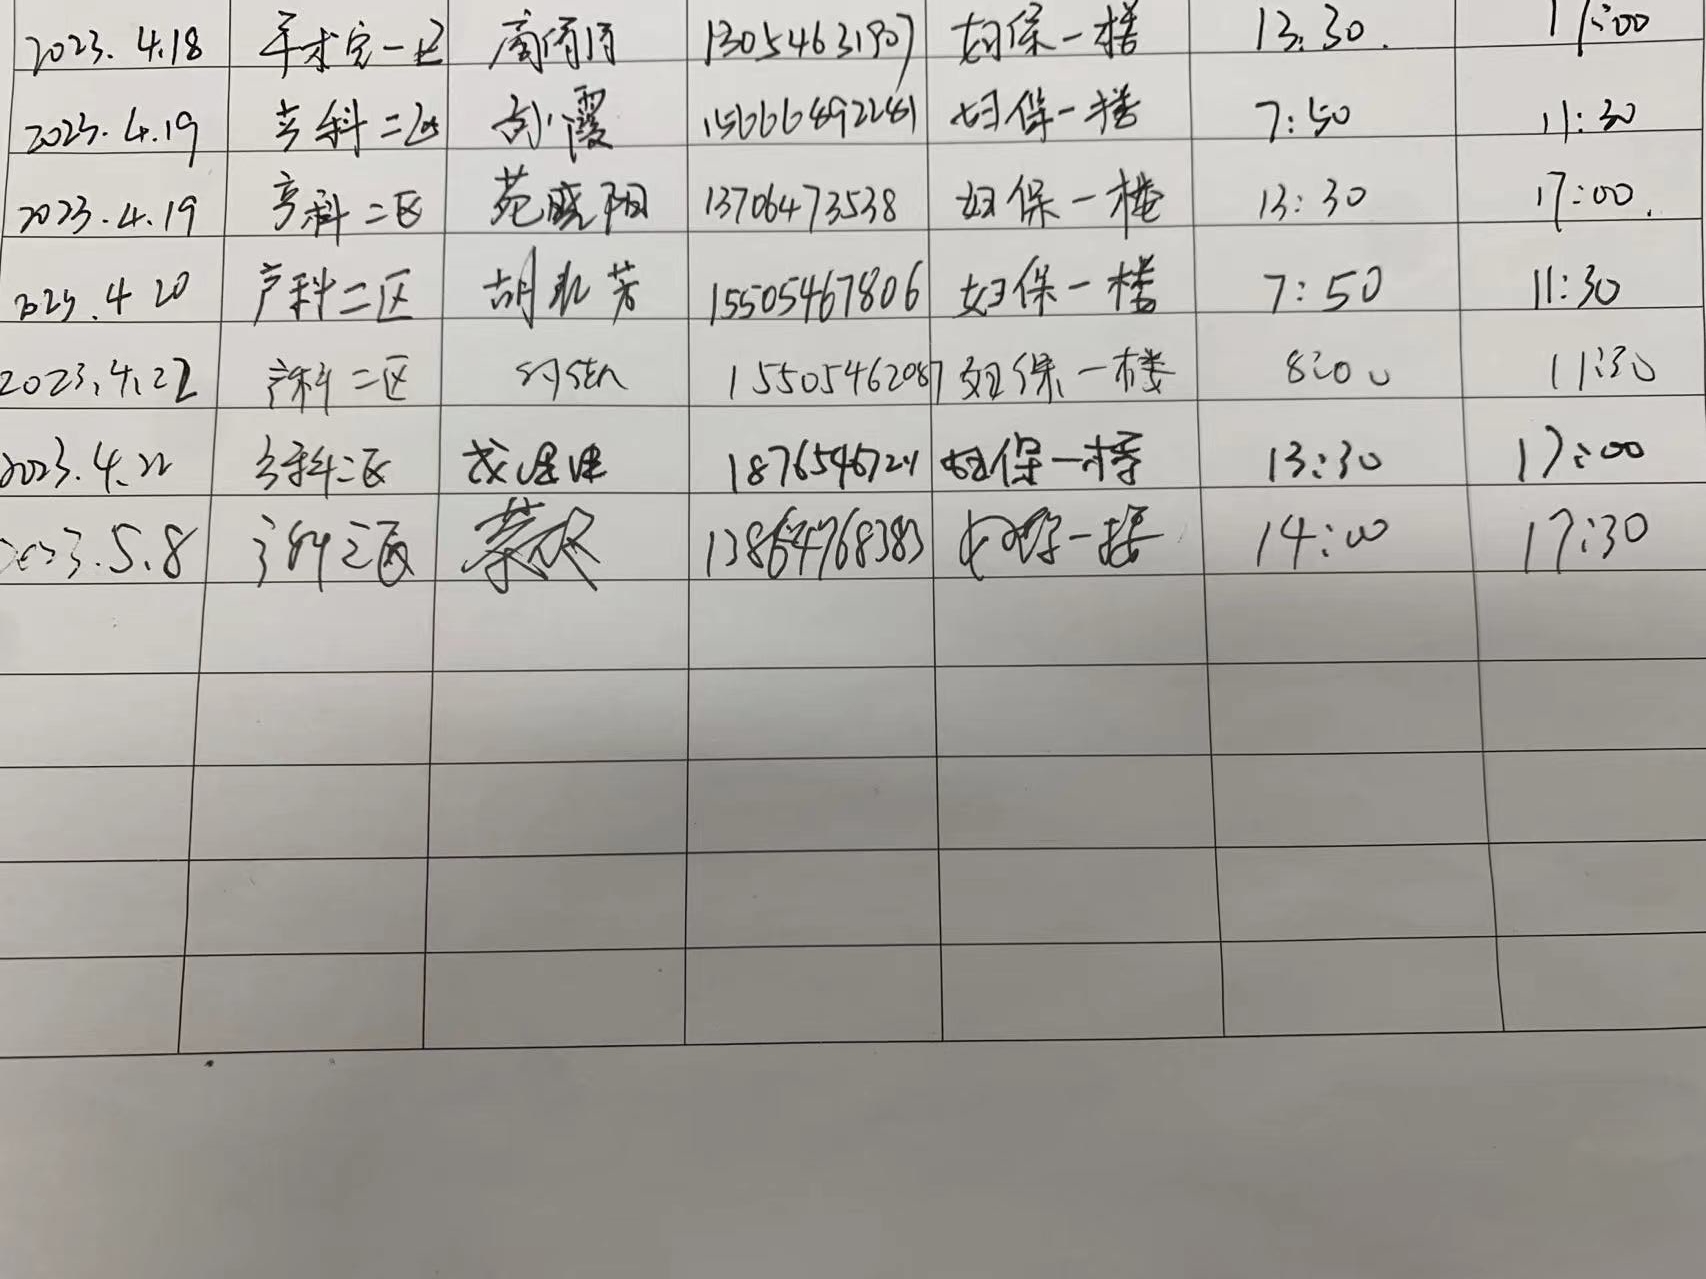 2023.4.18 手术室一区 13054631907 妇保一楼 13:30. 17:00
2023.4.19 产科二区 15666892281 妇保一楼 7:50 11:30
2023.4.19 产科二区 苑晓阳 13706473538 妇保一楼 13:30 17:00.
2023.4.20 产科二区 胡 芳 15505467806 妇保一楼 7:50 11:30
2023.4.22 产科二区 15505462087 妇保一楼 8:00 11:30
2023.4.22 产科二区 妇保一楼 13:30 17:00
2023.5.8 产科三区 13864768383 妇保一楼 14:00 17:30